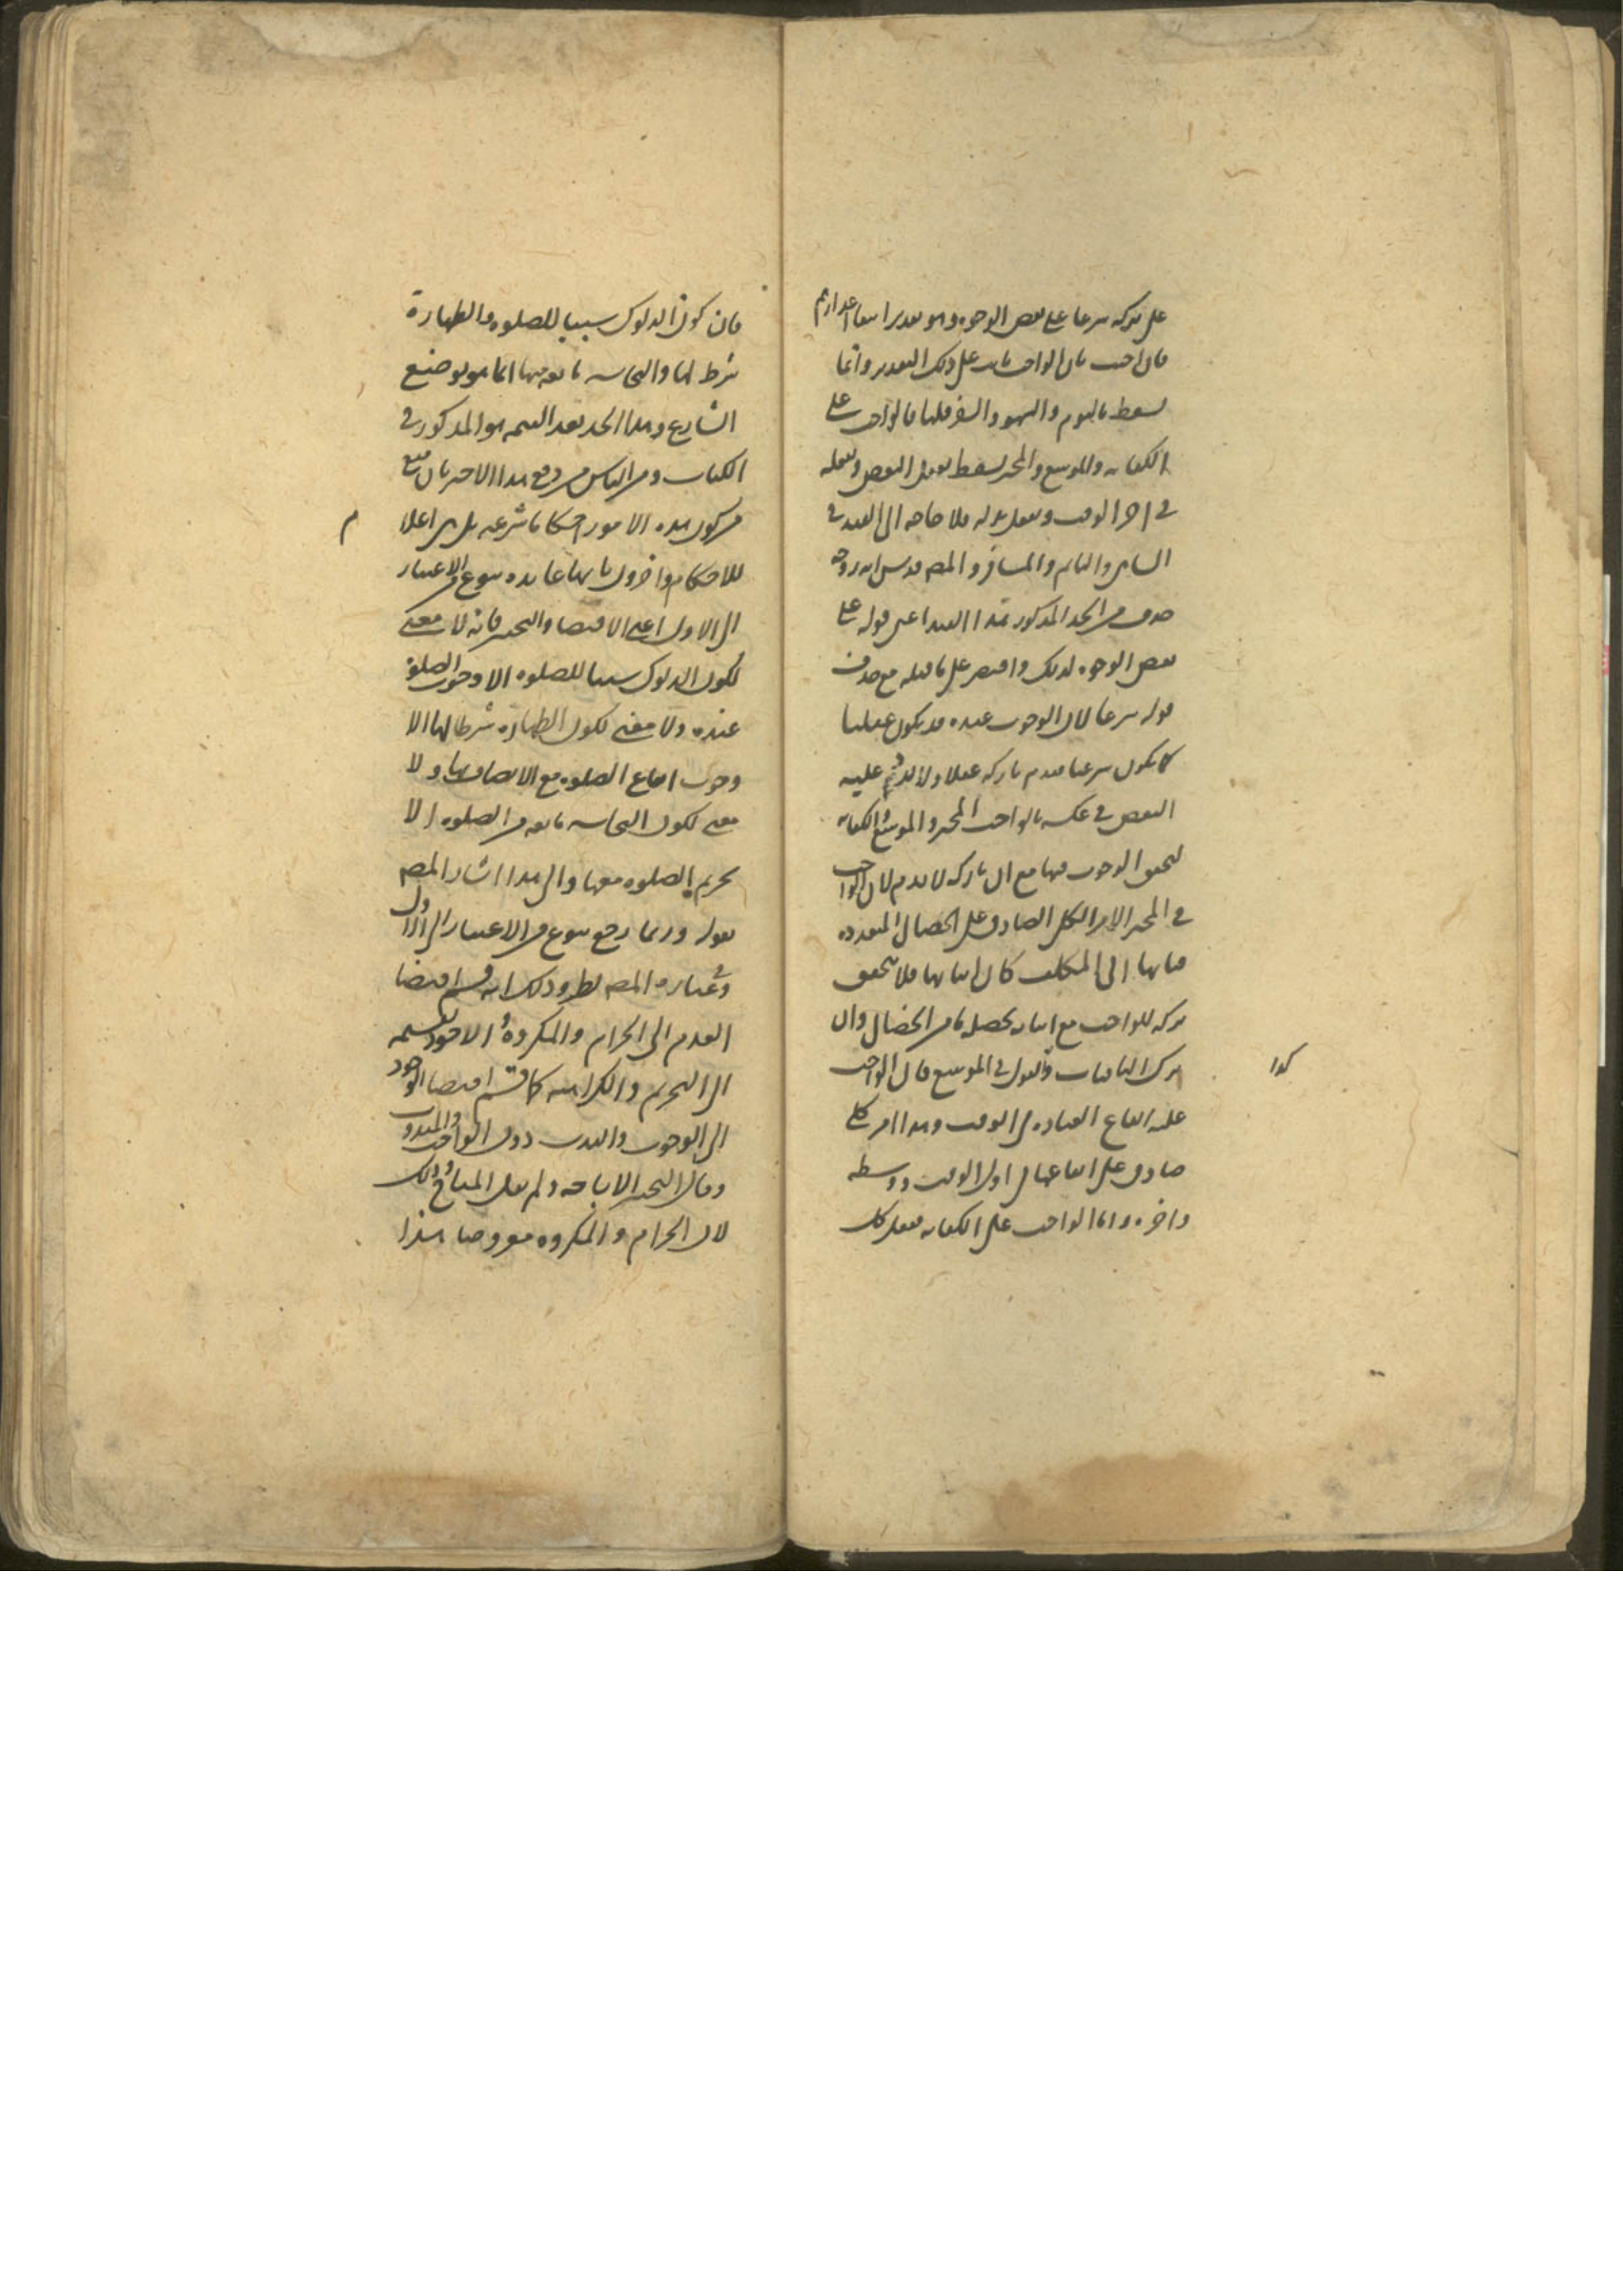 على تركه شرعا على بعض الوجوه وهو تقدير انتفاء اعذارهم
فان اجيب بان الواجب ثابت على ذلك التقدير وانما
يسقط بالنوم والسهو والسفر قلنا فالواجب على
الكفايه والموسع والمخير يسقط بفعل البعض وبفعله
في اخر الوقت وبفعل بدله فلا حاجه الى القيد في
الساهي والنايم والمسافر والمصـ قدس الله روحه
حذف من الحد المذكور هذا القيد اعني قوله على
بعض الوجوه لذلك واقتصر على ما قبله مع حذف
قوله شرعا لان الوجوب عنده قد يكون عقليا
كما يكون شرعيا فيذم تاركه عقلا ولا يرد عليه
النقض في عكسه بالواجب المخير والموسع والكفايه
لتحقق الوجوب فيها مع ان تاركه لا يذم لان الواجب
في المخير الامر الكلي الصادق على الخصال المتعدده
فايها اتى المكلف كان اتيا بها فلا يتحقق
تركه للواجب مع اتيانه بخصله ما من الخصال وان
ترك الباقيات والقول في الموسع فان الواجب
كذا
عليه ايقاع العباده في الوقت وهذا امر كلي
صادق على ايقاعها في اول الوقت ووسطه
واخره واما الواجب على الكفايه ففعل كل
فان كون الدلوك سببا للصلوه والطهارة
شرط لها والنجاسه مانعه منها انما هو بوضع
الشارع وهذا الحد بعد القسمه هو المذكور في
الكتاب ومن الناس من دفع هذا الاخير بان منع
من كون هذه الامور احكاما شرعيه بل هي اعلام
للاحكام واخرون بانها عايده بنوع من الاعتبار
الى الاول اعني الاقتضا والتخيير فانه لا معنى
لكون الدلوك سببا للصلوه الا وجوب الصلوة
عنده ولا معنى لكون الطهاره شرطا لها الا
وجوب ايقاع الصلوه مع الاتصاف بها ولا
معنى لكون النجاسه مانعه من الصلوه الا
تحريم الصلوه معها والى هذا اشار المصـ
بقوله وربما رجع بنوع من الاعتبار الى الاول
وفي عباره المصـ نظر وذلك انه قسم اقتضا
العدم الى الحرام والمكروه والاجود تقسيمه
الى التحريم والكراهه كما قسم اقتضا الوجود
الى الوجوب والندب دون الواجب والمندوب
وقال التخيير الاباحه ولم يقل المباح وذلك
لان الحرام والمكروه معروضا هذا